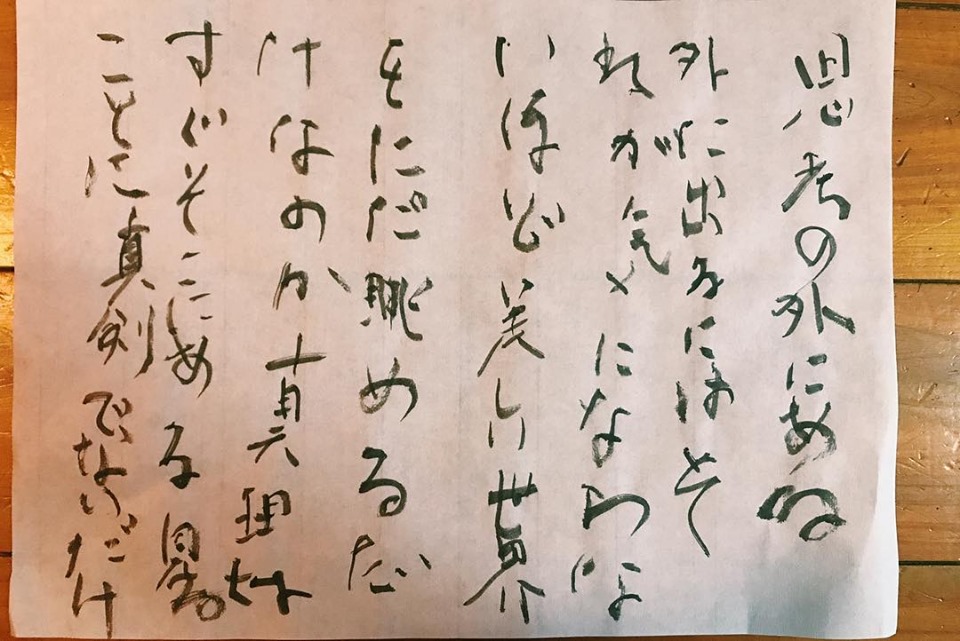 思考の外にある
外に出るにはそ
れが気にならな
いほど美しい世界
をただ眺めるだ
けなのか真理は
すぐそこにある見る
ことに真剣でないだけ